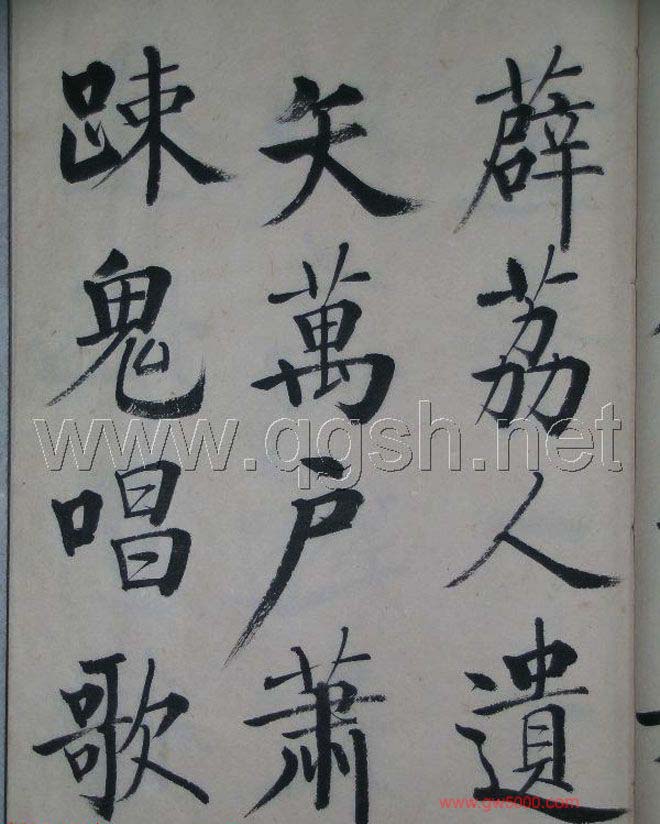 薜荔人遺
矢萬戶蕭
踈鬼唱歌
www.qgsh.net
www.gw5000.com